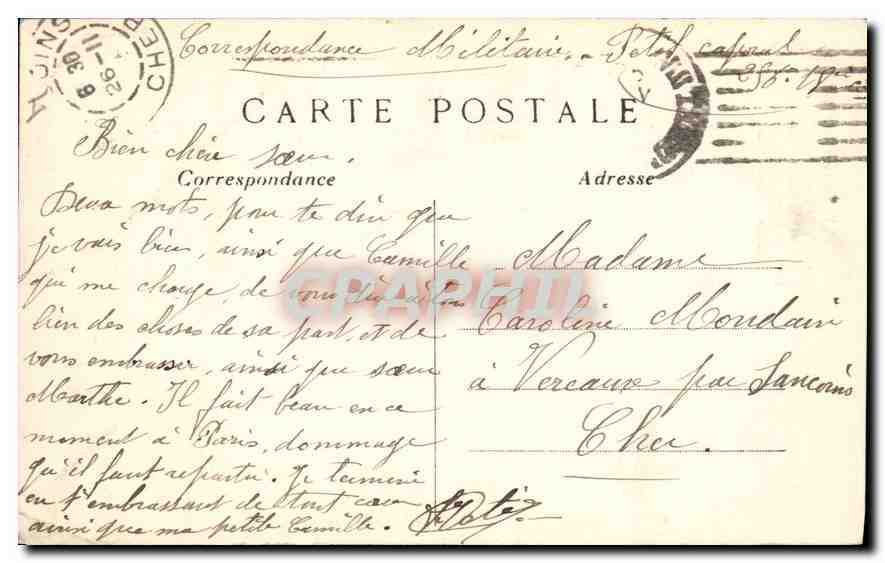 MOINS
6 30
26 - 11
CHER
Correspondance Militaire. Petit caporal
CARTE POSTALE
Bien chère sœur.
Correspondance
Adresse
Deux mots, pour te dire que
je vais bien, ainsi que Camille
qui me charge, de vous dire à tous
bien des choses de sa part, et de
vous embrasser, ainsi que sœur
Marthe. Il fait beau en ce
moment à Paris, dommage
qu'il faut repartir. Je termine
en t'embrassant de tout cœur
ainsi que ma petite Camille.
CPAPHIL
Madame
Caroline Mondain
à Vereaux par Sancoins
Cher.